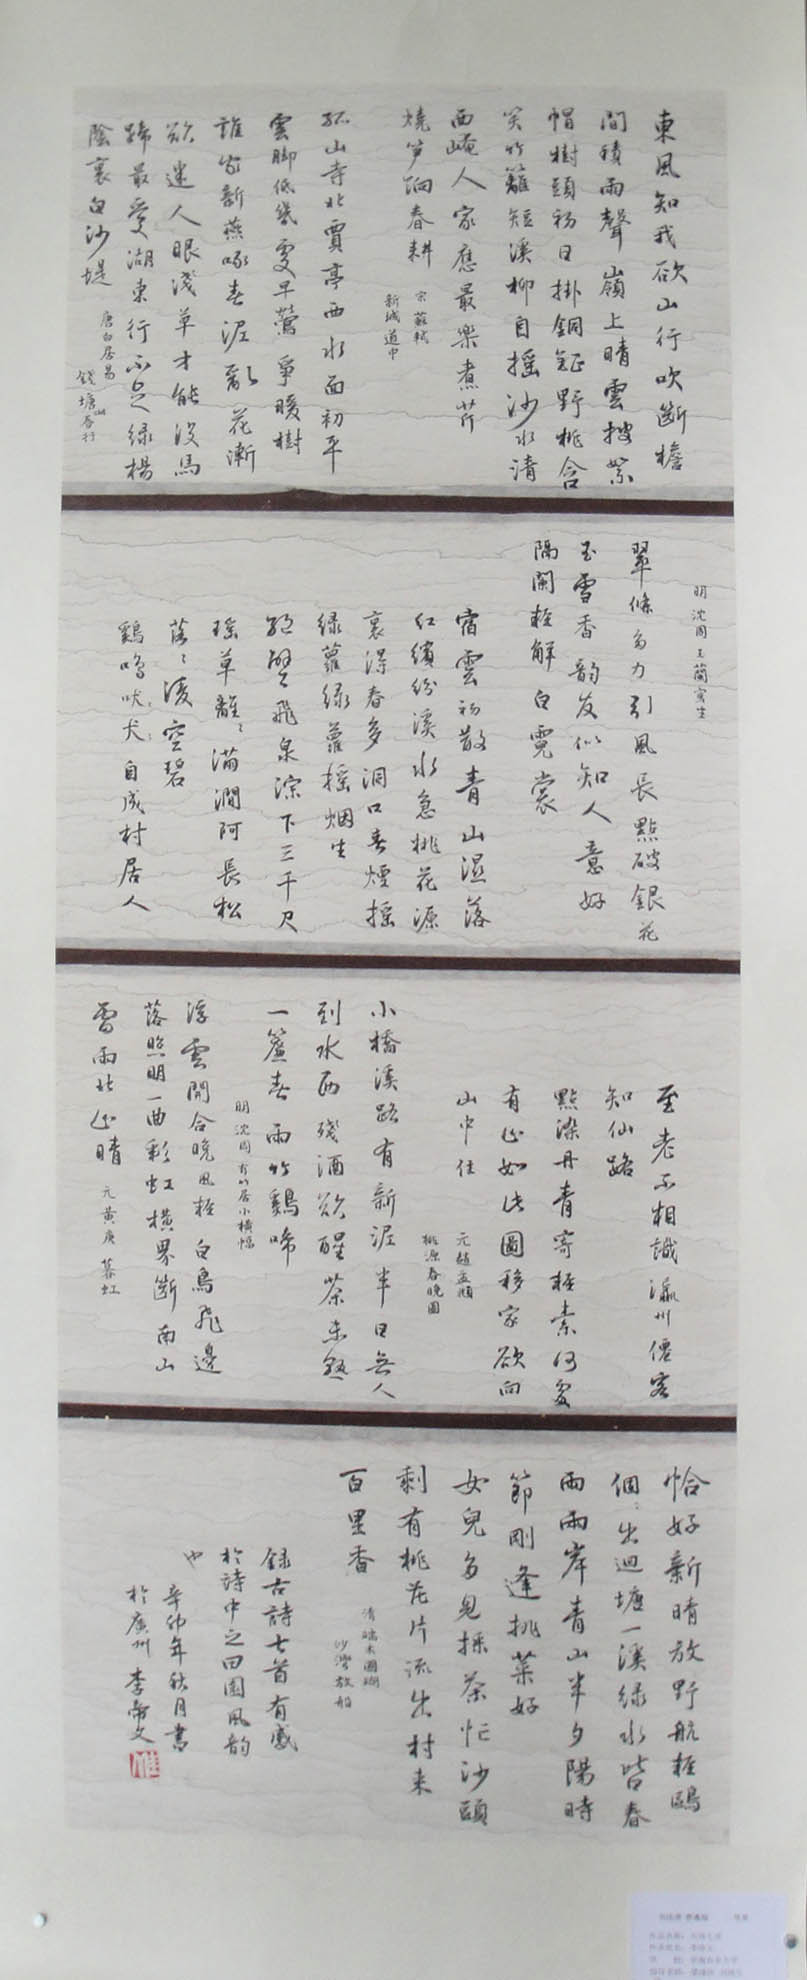 東風知我欲山行吹斷檐
間積雨聲嶺上晴雲披絮
帽樹頭初日掛銅鉦野桃含
笑竹籬短溪柳自搖沙水清
西崦人家應最樂煮芹
燒笋餉春耕
宋蘇軾
新城道中
孤山寺北賈亭西水面初平
雲脚低幾處早鶯爭暖樹
誰家新燕啄春泥亂花漸
欲迷人眼淺草才能沒馬
蹄最愛湖東行不足綠楊
陰裏白沙堤
唐白居易
錢塘春行
明沈周玉蘭寫生
翠條多力引風長點破銀花
玉雪香韵友似知人意好
隔闌輕解白霓裳
宿雲初散青山濕落
紅繽紛溪水急桃花源
裏得春多洞口春煙摇
綠蘿綠蘿摇烟生
絕壁飛泉淙下三千尺
瑶草離離滿澗阿長松
落落凌空碧
鷄鳴吠犬自成村居人
至老不相識瀛州僊客
知仙路
點染丹青寄輕素何處
有山如此圖移家欲向
山中住
元趙孟頫
桃源春曉圖
小橋溪路有新泥半日無人
到水西殘酒欲醒茶未熟
一簾春雨竹鷄啼
明沈周有竹居小橫幅
浮雲開合晚風輕白鳥飛邊
落照明一曲彩虹橫界斷南山
雷雨北山晴
元黄庚暮虹
恰好新晴放野航輕鷗
個個出迴塘一溪綠水皆春
雨兩岸青山半夕陽時
節剛逢挑菜好
女兒多見採茶忙沙頭
剩有桃花片流出村來
百里香
清端木國瑚
沙灣放船
錄古詩七首有感
於詩中之田園風韵
也
辛卯年秋月書
於廣州李